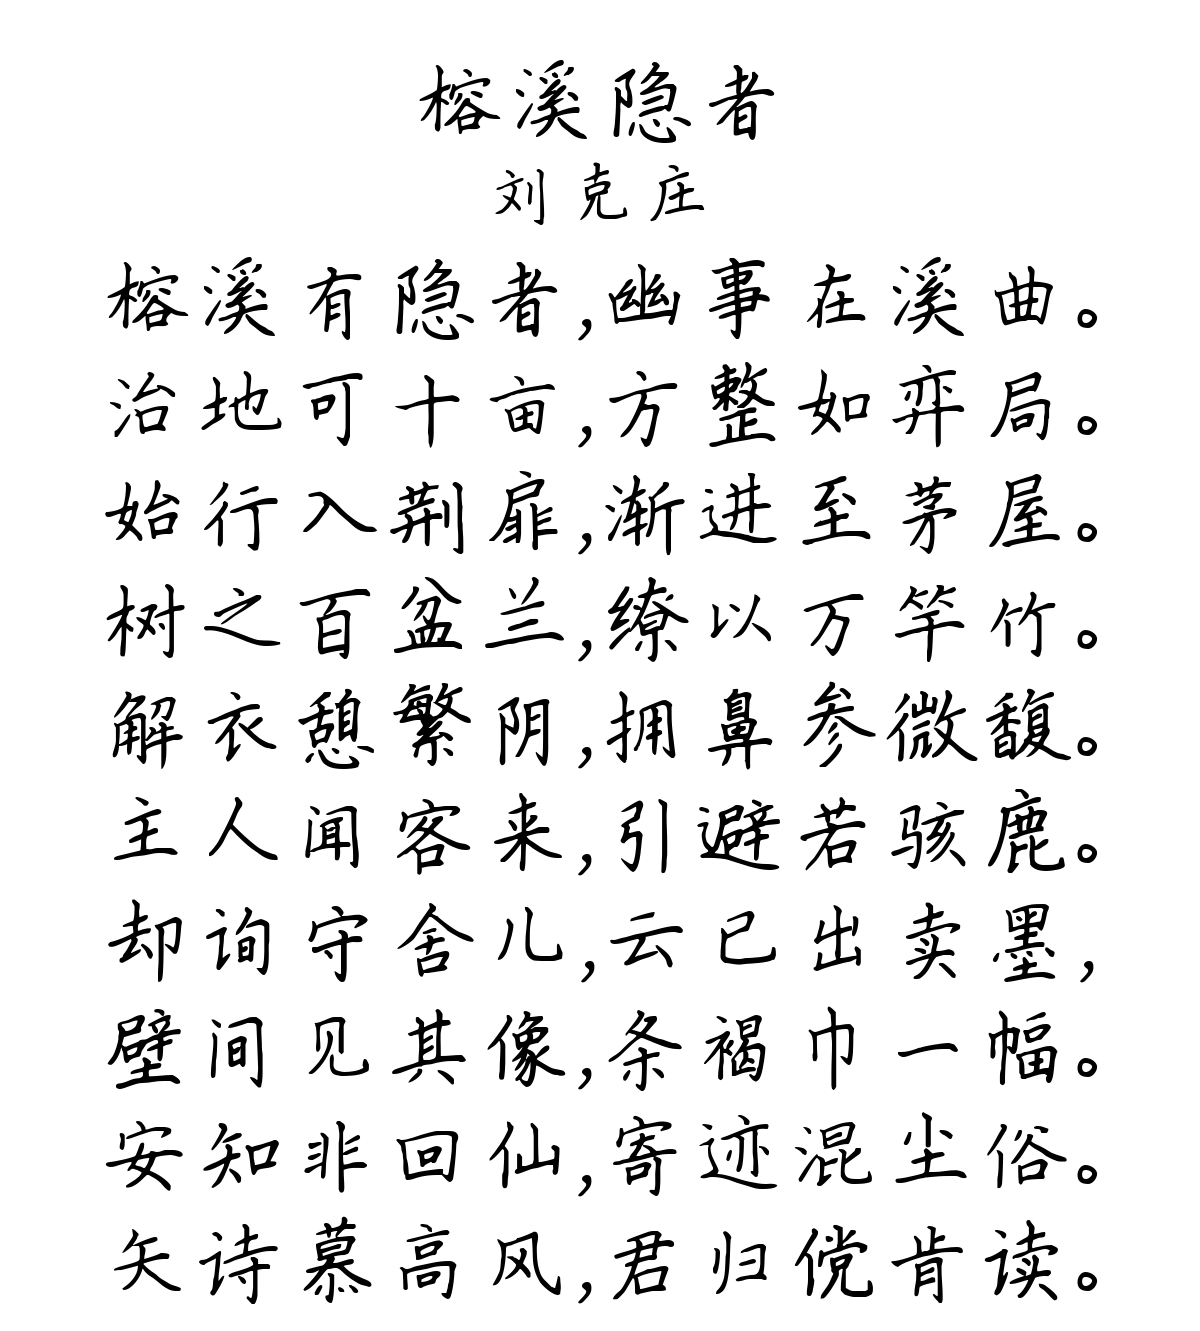 榕溪隐者
刘克庄
榕溪有隐者,幽事在溪曲。
治地可十亩,方整如弈局。
始行入荆扉,渐进至茅屋。
树之百盆兰,缭以万竿竹。
解衣憩繁阴,拥鼻参微馥。
主人闻客来,引避若骇鹿。
却询守舍儿,云已出卖墨,
壁间见其像,条褐巾一幅。
安知非回仙,寄迹混尘俗。
矢诗慕高风,君归傥肯读。